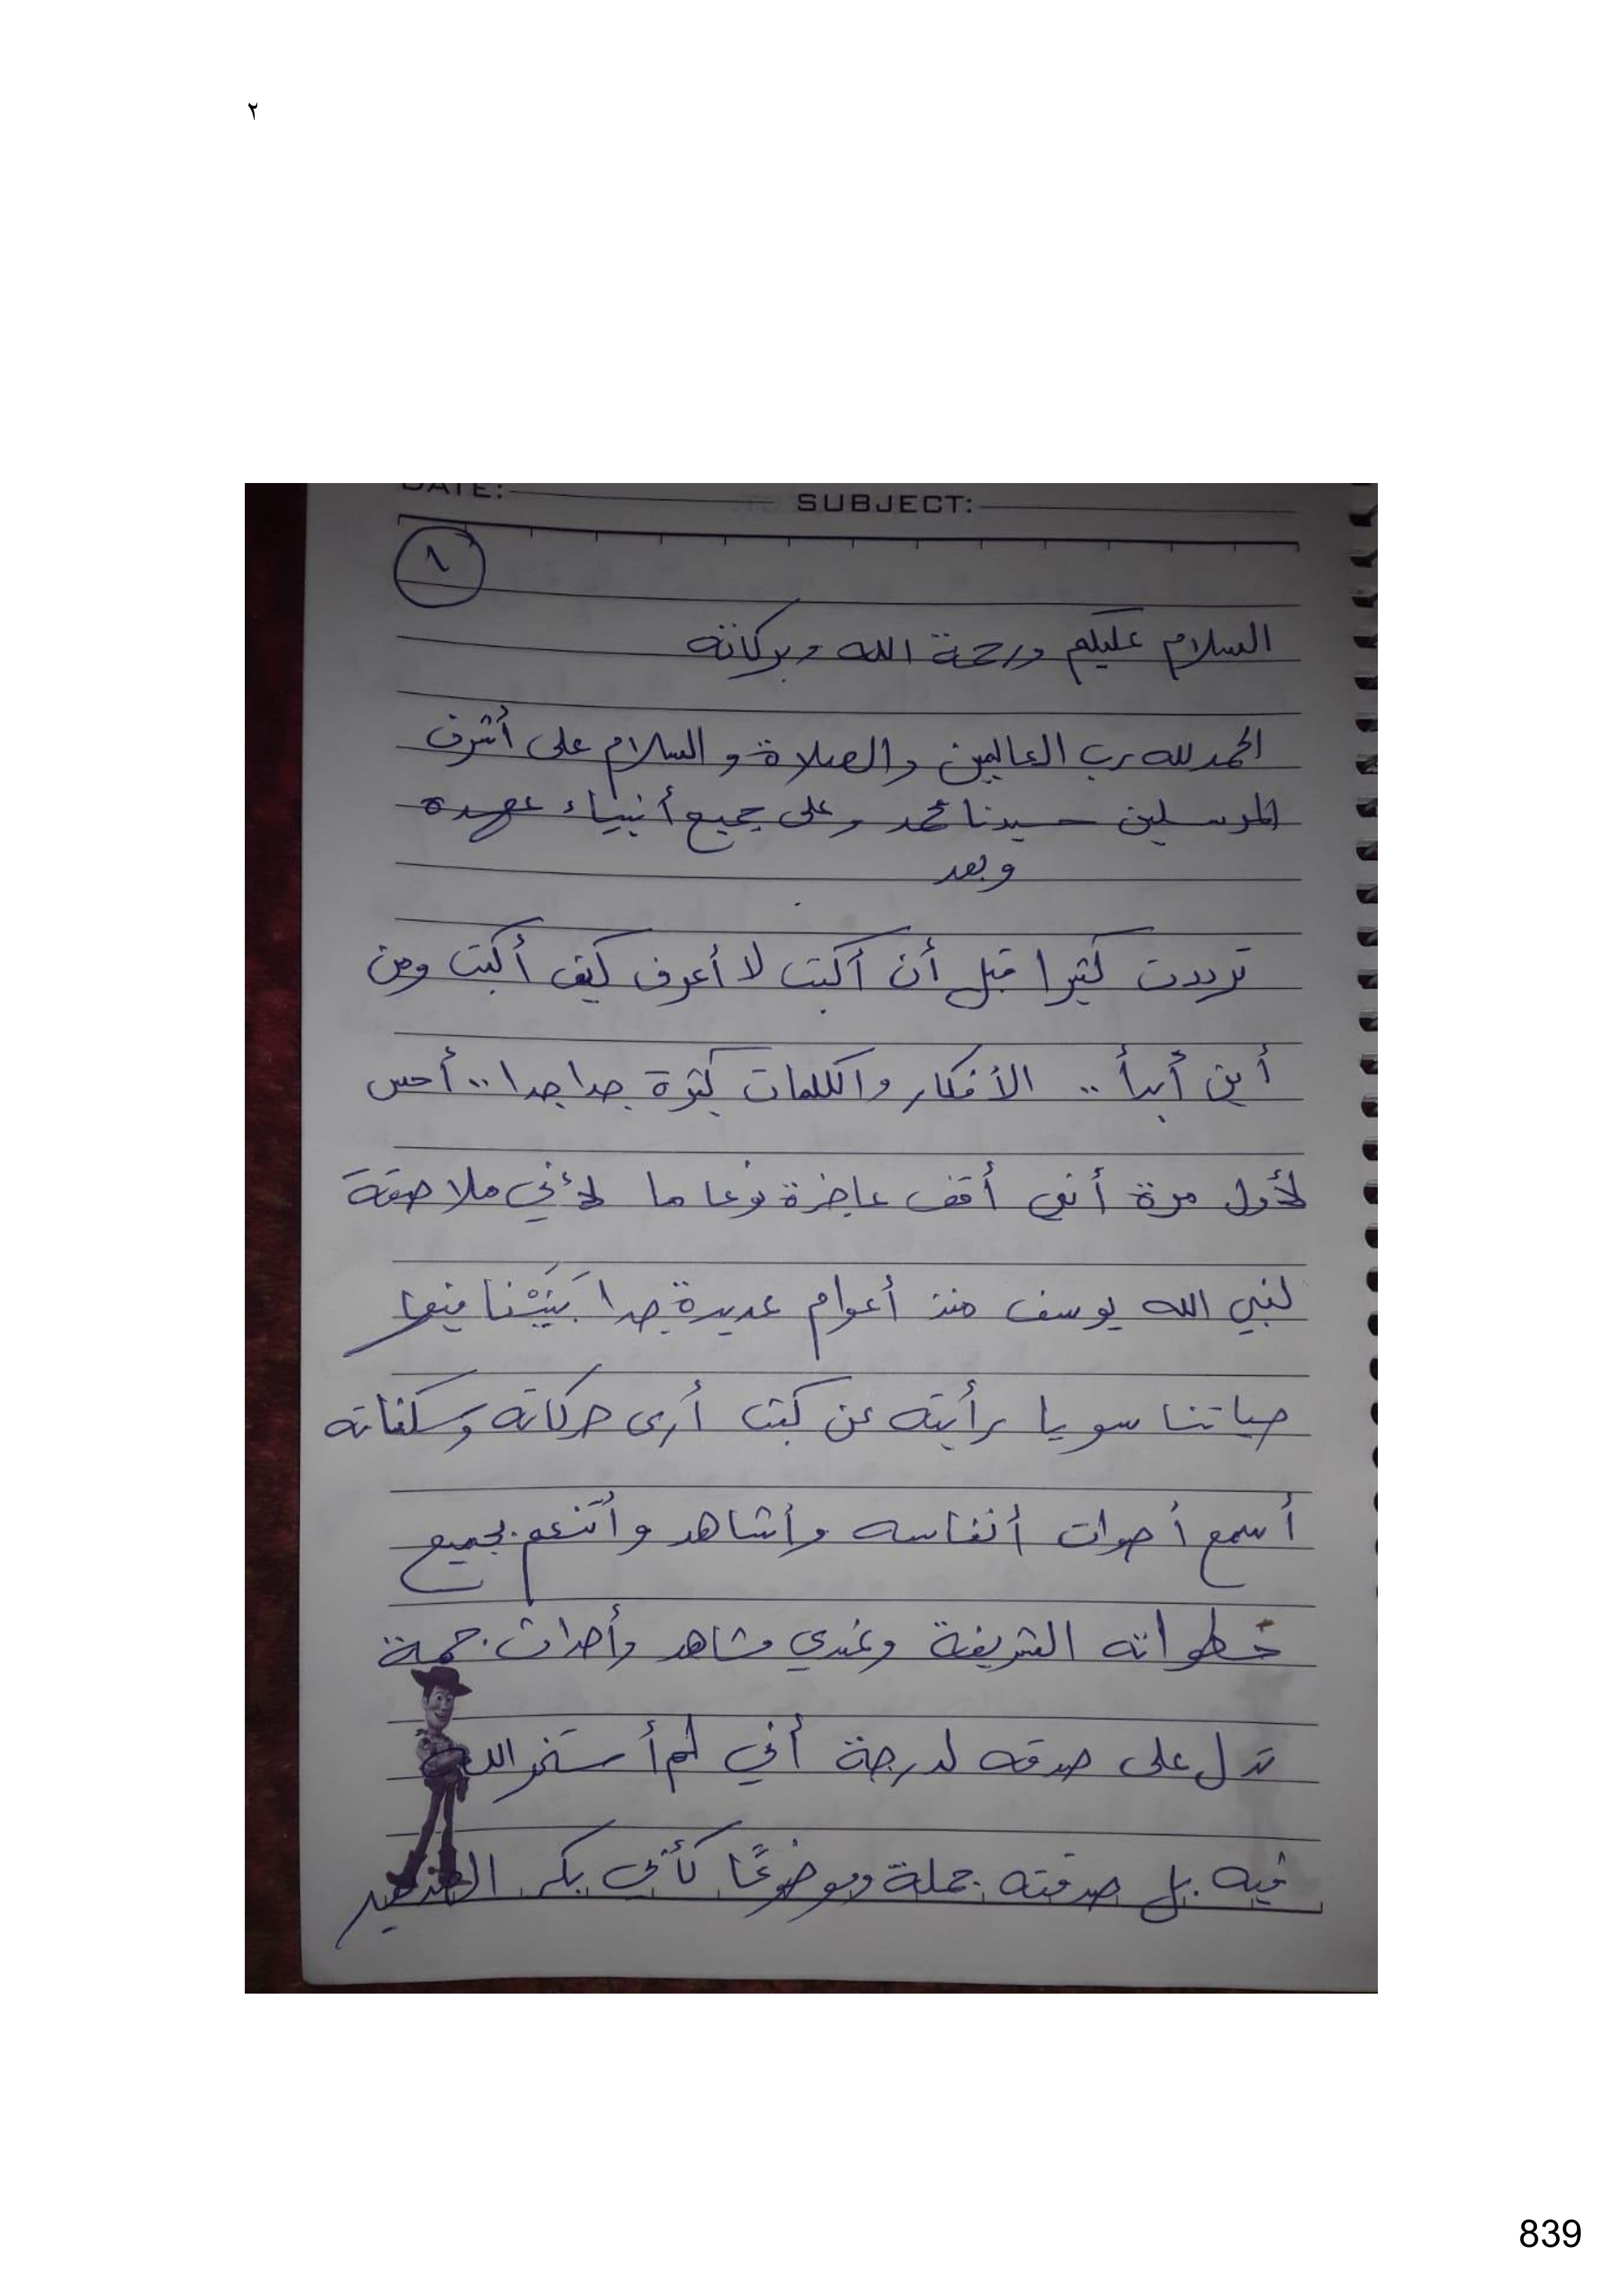 ٢
DATE: SUBJECT:
١
السلام عليكم ورحمة الله وبركاته
الحمد لله رب العالمين والصلاة والسلام على أشرف
المرسلين سيدنا محمد وعلى جميع أنبياء عهده
وبعد
ترددت كثيرا قبل أن أكتب لا أعرف كيف أكتب ومن
أين أبدأ .. الأفكار والكلمات كثيرة جدا جدا .. أحس
لأول مرة أنني أقف عاجزة نوعا ما لأني ملاصقة
لنبي الله يوسف منذ أعوام عديدة جدا بَنَيْنا فيها
حياتنا سويا رأيته عن كثب أرى حركاته وسكناته
أسمع أصوات أنفاسه وأشاهد وأتنعم بجميع
خطواته الشريفة وعندي مشاهد وأحداث جمة
تدل على صدقه لدرجة أني لم أستخر الله
فيه بل صدقته جملة وموضوعًا كأني بكر
839